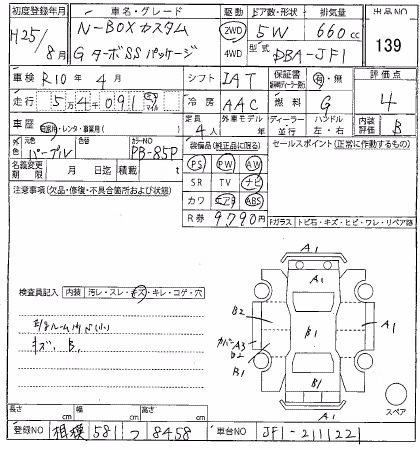 初度登録年月 車名・グレード 駆動 ドア数・形状 排気量 出品NO
H25/8月 N-BOXカスタム GターボSSパッケージ 2WD 4WD 5W 660cc 139
型式 DBA-JF1
車検 R10年4月 シフト IAT 保証書 有・無 評価点
走行 54091 マイル 冷房 AAC 燃料 G 4
車歴 自家用・レンタ・事業用 定員 4人 外車モデル ディーラー 並行 ハンドル 左・右 内装評価 B
色 元色 パープル 色替 カラーNO PB-85P 装備品(純正品に限る) セールスポイント(正常に作動するもの)
名義変更期限 月 日迄 積載 t PS PW AW
注意事項(欠品・修復・不具合箇所および状態) SR TV ナビ
カワ エアB ABS
R券 9,790円 Fガラス トビ石・キズ・ヒビ・ワレ・リペア跡
A1
A1
検査員記入 内装 汚レ・スレ・キズ・キレ・コゲ・穴
B2
B1
A1
カバーA3
B2
B1
キズ、B、
B1
スペア
A1
長さ cm 幅 cm 高さ cm
登録NO 相模 581 つ 8458 車台NO JF1-2111221